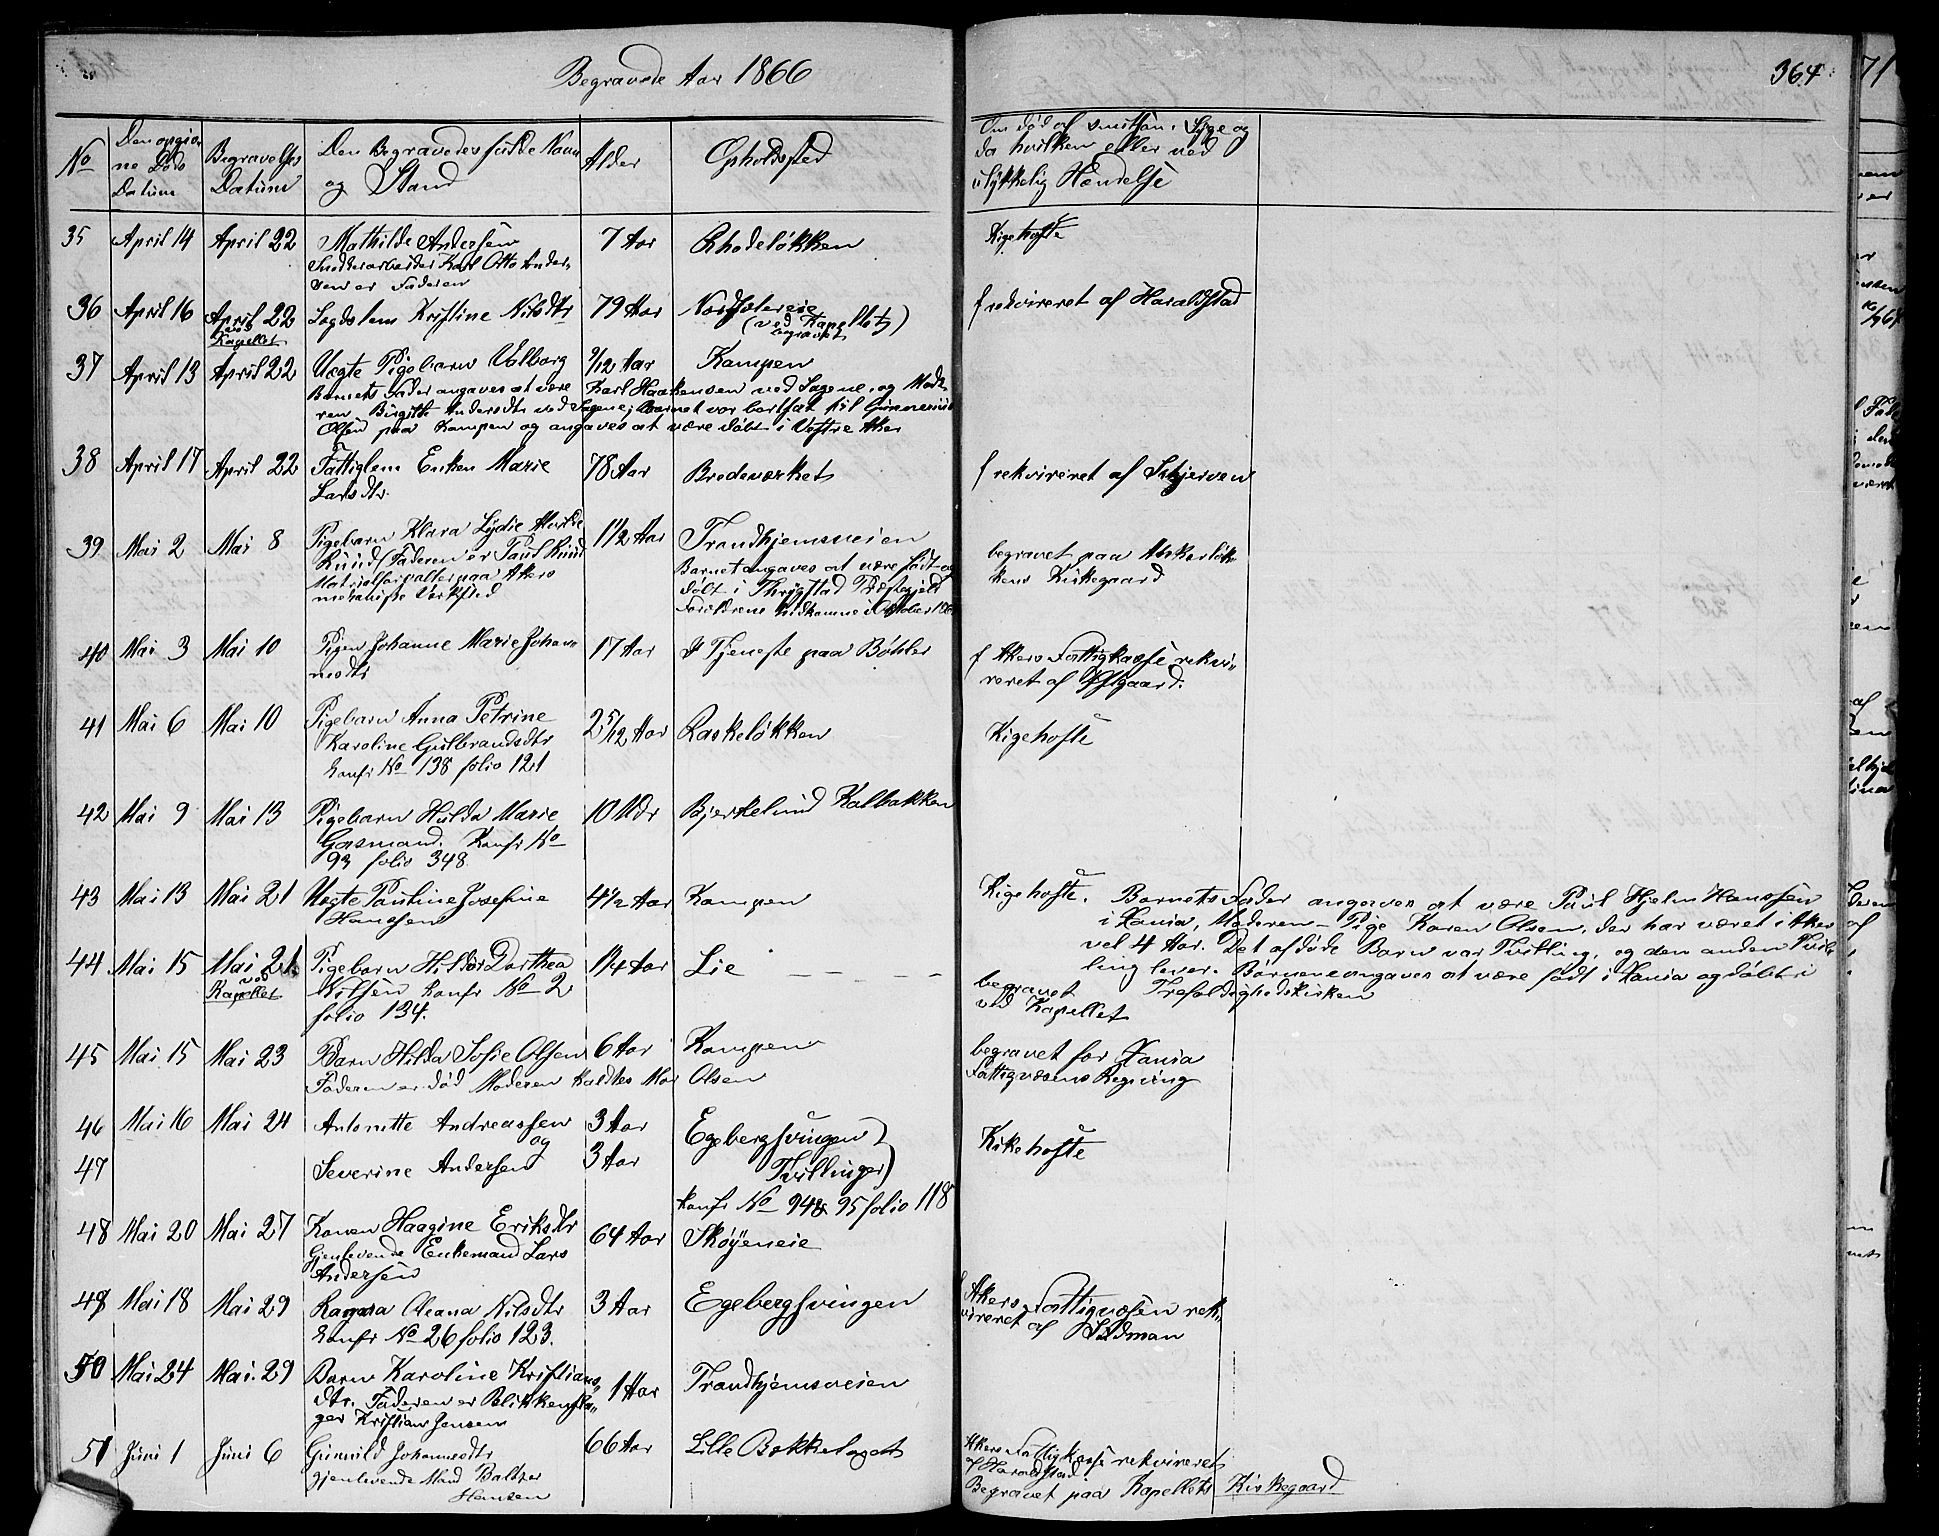 Begravede Aar 1866
364
71
No
Den opgiv-
ne Døds
Datum
Begravelses
Datum
Den Begravedes fulde Navn
og Stand
Alder
Opholdssted
Om død af smitsom Syge og
da hvilken eller ved
ulykkelig Hændelse
35 April 14 April 22 Mathilde Andersen 7 Aar Rhodeløkken Kigehoste
Karl Otto Ander-
sen er Faderen
36 April 16 April 22 Logdslem Kristine Nilsdtr 79 Aar
ved
Kapellet
(ved Kapellet
begravet)
f rekvireret af Haraldstad
37 April 13 April 22 Uegte Pigebarn Valborg 9/12 Aar Kampen
Barnets Fader angaves at være Karl Haakensen ved Sagene, og Mode-
ren Birgitte Andersdtr ved Sagene; Barnet var bortsat til Gunnerius
Olsen paa Kampen og angaves at være døbt i Vestre Aker
38 April 17 April 22 Fattiglem Enken Marie 78 Aar Bredeværket f rekvireret af Skjerven
Larsdtr.
39 Mai 2 Mai 8 Pigebarn Klara Lydie Alvilde 1 1/2 Aar Trondhjemsveien
Ruud (Faderen er Paul Ruud
Matrialforvalter paa Akers
mekaniske Verksted
Barnet angaves at være født og
døbt i Thrygstad Præstegjeld
Forældrene hidkomne i Oktober
begravet paa Ankerløk-
kens Kirkegaard
40 Mai 3 Mai 10 Pigen Johanne Marie Johan- 17 Aar I Tjeneste paa Bøhler
nesdtr
f Akers Fattigkasse rekvi-
reret af Østgaard.
41 Mai 6 Mai 10 Pigebarn Anna Petrine 2 5/12 Aar Laskeløkken Kigehoste
Karoline Gulbrandsdtr
konfr No 138 folio 121
42 Mai 9 Mai 13 Pigebarn Hulda Marie 10 Mdr Bjerkelund Kalbakken
Gasmand. Konfr No
93 folio 348
43 Mai 13 Mai 21 Uegte Pauline Josefine 4 1/2 Aar Kampen
Hanssen
Kigehoste. Barnets Fader angaves at være Paul Hjelm Hanssen
i Xania, Moderen - Pige Karen Olsen, der har været i Aker
vel 4 Aar. Det afdøde Barn var Tvilling, og den anden Tvil-
ling lever. Børnene angaves at være født i Xania og døbt i
Trefoldighedskirken
44 Mai 15 Mai 21 Pigebarn Hilda Dorthea 1 1/4 Aar Lie
ved
Kapellet
Nilsen konfr No 2
folio 134.
begravet
ved Kapellet
45 Mai 15 Mai 23 Barn Hilda Sofie Olsen 6 Aar Kampen
Faderen er død Moderen kaldtes Mar Olsen
begravet for Xania
Fattigvæsens Regning
46 Mai 16 Mai 24 Antonette Andreassen 3 Aar Egebergsvingen
og
Kikehoste
47 Severine Andersen 3 Aar Tvillinger
konfr No 94 & 95 folio 118
48 Mai 20 Mai 27 Konen Haagine Eriksdtr 64 Aar Skøyeneie
Gjenlevende Enkemand Lars
Andersen
49 Mai 18 Mai 29 Ragna Oleana Nilsdtr 3 Aar Egebergsvingen
konfr No 26 folio 123.
f Akers Fattigvæsen rek-
vireret af
50 Mai 24 Mai. 29 Barn Karoline Kristians- 1 Aar Trondhjemsveien
dtr. Faderen er Blikkensla-
ger Kristian Jensen
51 Juni 1 Juni 6 Gunnild Johannesdtr 66 Aar Lille Bekkelaget
gjenlevende Mand Baltzer
Hansen
Akers Fattigkasse rekvireret
af Haraldstad
Begravet paa Kapellets Kirkegaard